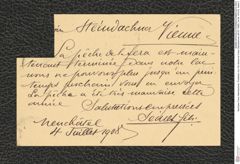 Steindachner Vienne
La pêche de la féra est main-
tenant terminée dans notre lac
nous ne pouvons plus jusqu'au prin-
temps prochain vous en envoyer
La pêche a été très mauvaise cette
année
Salutations empressées
Neuchâtel
4 Juillet 1908